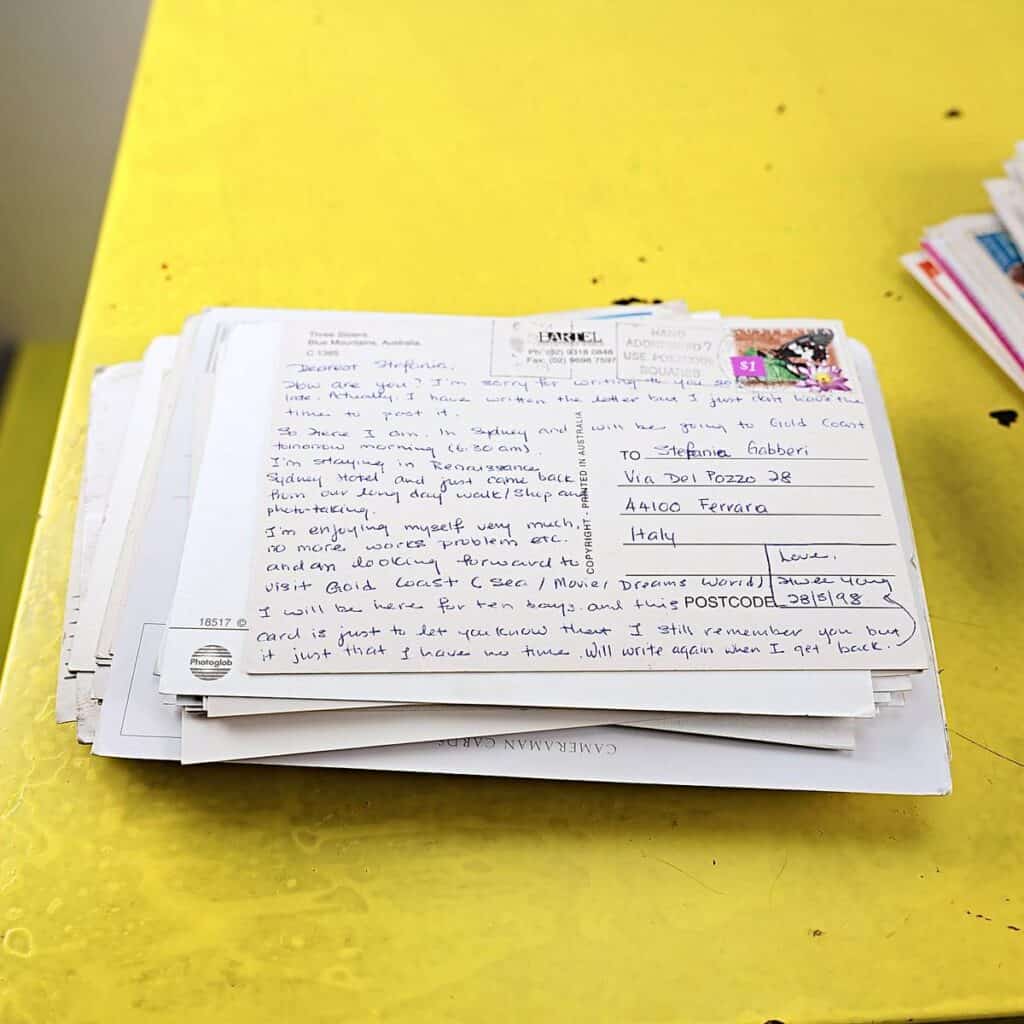 Three Sisters
Blue Mountains, Australia.
C 1365
BARTEL
Ph: (02) 9318 0846
Fax: (02) 9698 7597
HAND
ADDRESSED?
USE POSTCODE
SQUARES
$1
Dearest Stefania,
How are you? I'm sorry for writing to you so
late. Actually, I have written the letter but I just don't have the
time to post it.
So here I am. In Sydney and will be going to Gold Coast
tomorrow morning (6:30 am).
I'm staying in Renaissance
Sydney Hotel and just came back
from our long day walk/ship and
photo-taking.
I'm enjoying myself very much,
no more works problem etc.
and am looking forward to
visit Gold Coast (Sea / Movie, Dreams World)
I will be here for ten days. and this
card is just to let you know that I still remember you but
it just that I have no time. Will write again when I get back.
Love,
28/5/98
COPYRIGHT - PRINTED IN AUSTRALIA
TO Stefania Gabberi
Via Del Pozzo 28
44100 Ferrara
Italy
POSTCODE
18517 ©
Photoglob
CAMERAMAN CARDS